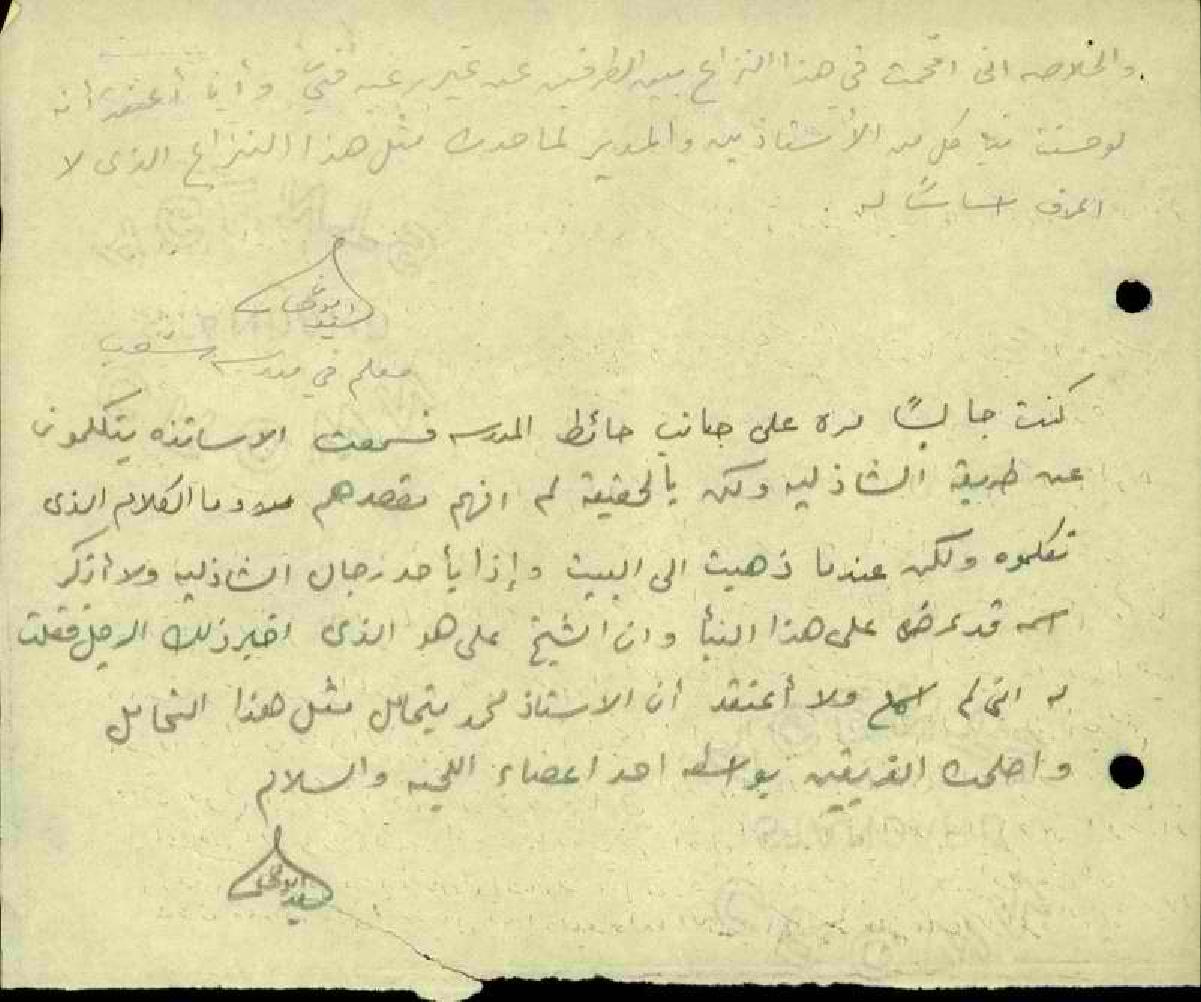 والخلاصه انى اقحمت في هذا النزاع بين الطرفين عن غير رغبه مني وأنا أعتقد أنه
لو حسنت نية كل من الأستاذين والمدير لما حدث مثل هذا النزاع الذى لا
اعرف اساسًا له .
معلم في مدرسة شعب
كنت جالسًا مرة على جانب حائط المدرسه فسمعت الاساتذه يتكلمون
عن طريقة الشاذليه ولكن بالحقيقة لم افهم مقصدهم وما الكلام الذى
تكلموه ولكن عندما ذهبت الى البيت وإذا بأحد رجال الشاذليه ولا أذكر
اسمه قد عرض على هذا النبأ وان الشيخ على هو الذى اخبر ذلك الرجل فقلت
له انى لم اسمع ولا أعتقد أن الاستاذ محمد يتحامل مثل هذا التحامل
واصلحت الفريقين بواسطه احد اعضاء اللجنه والسلام